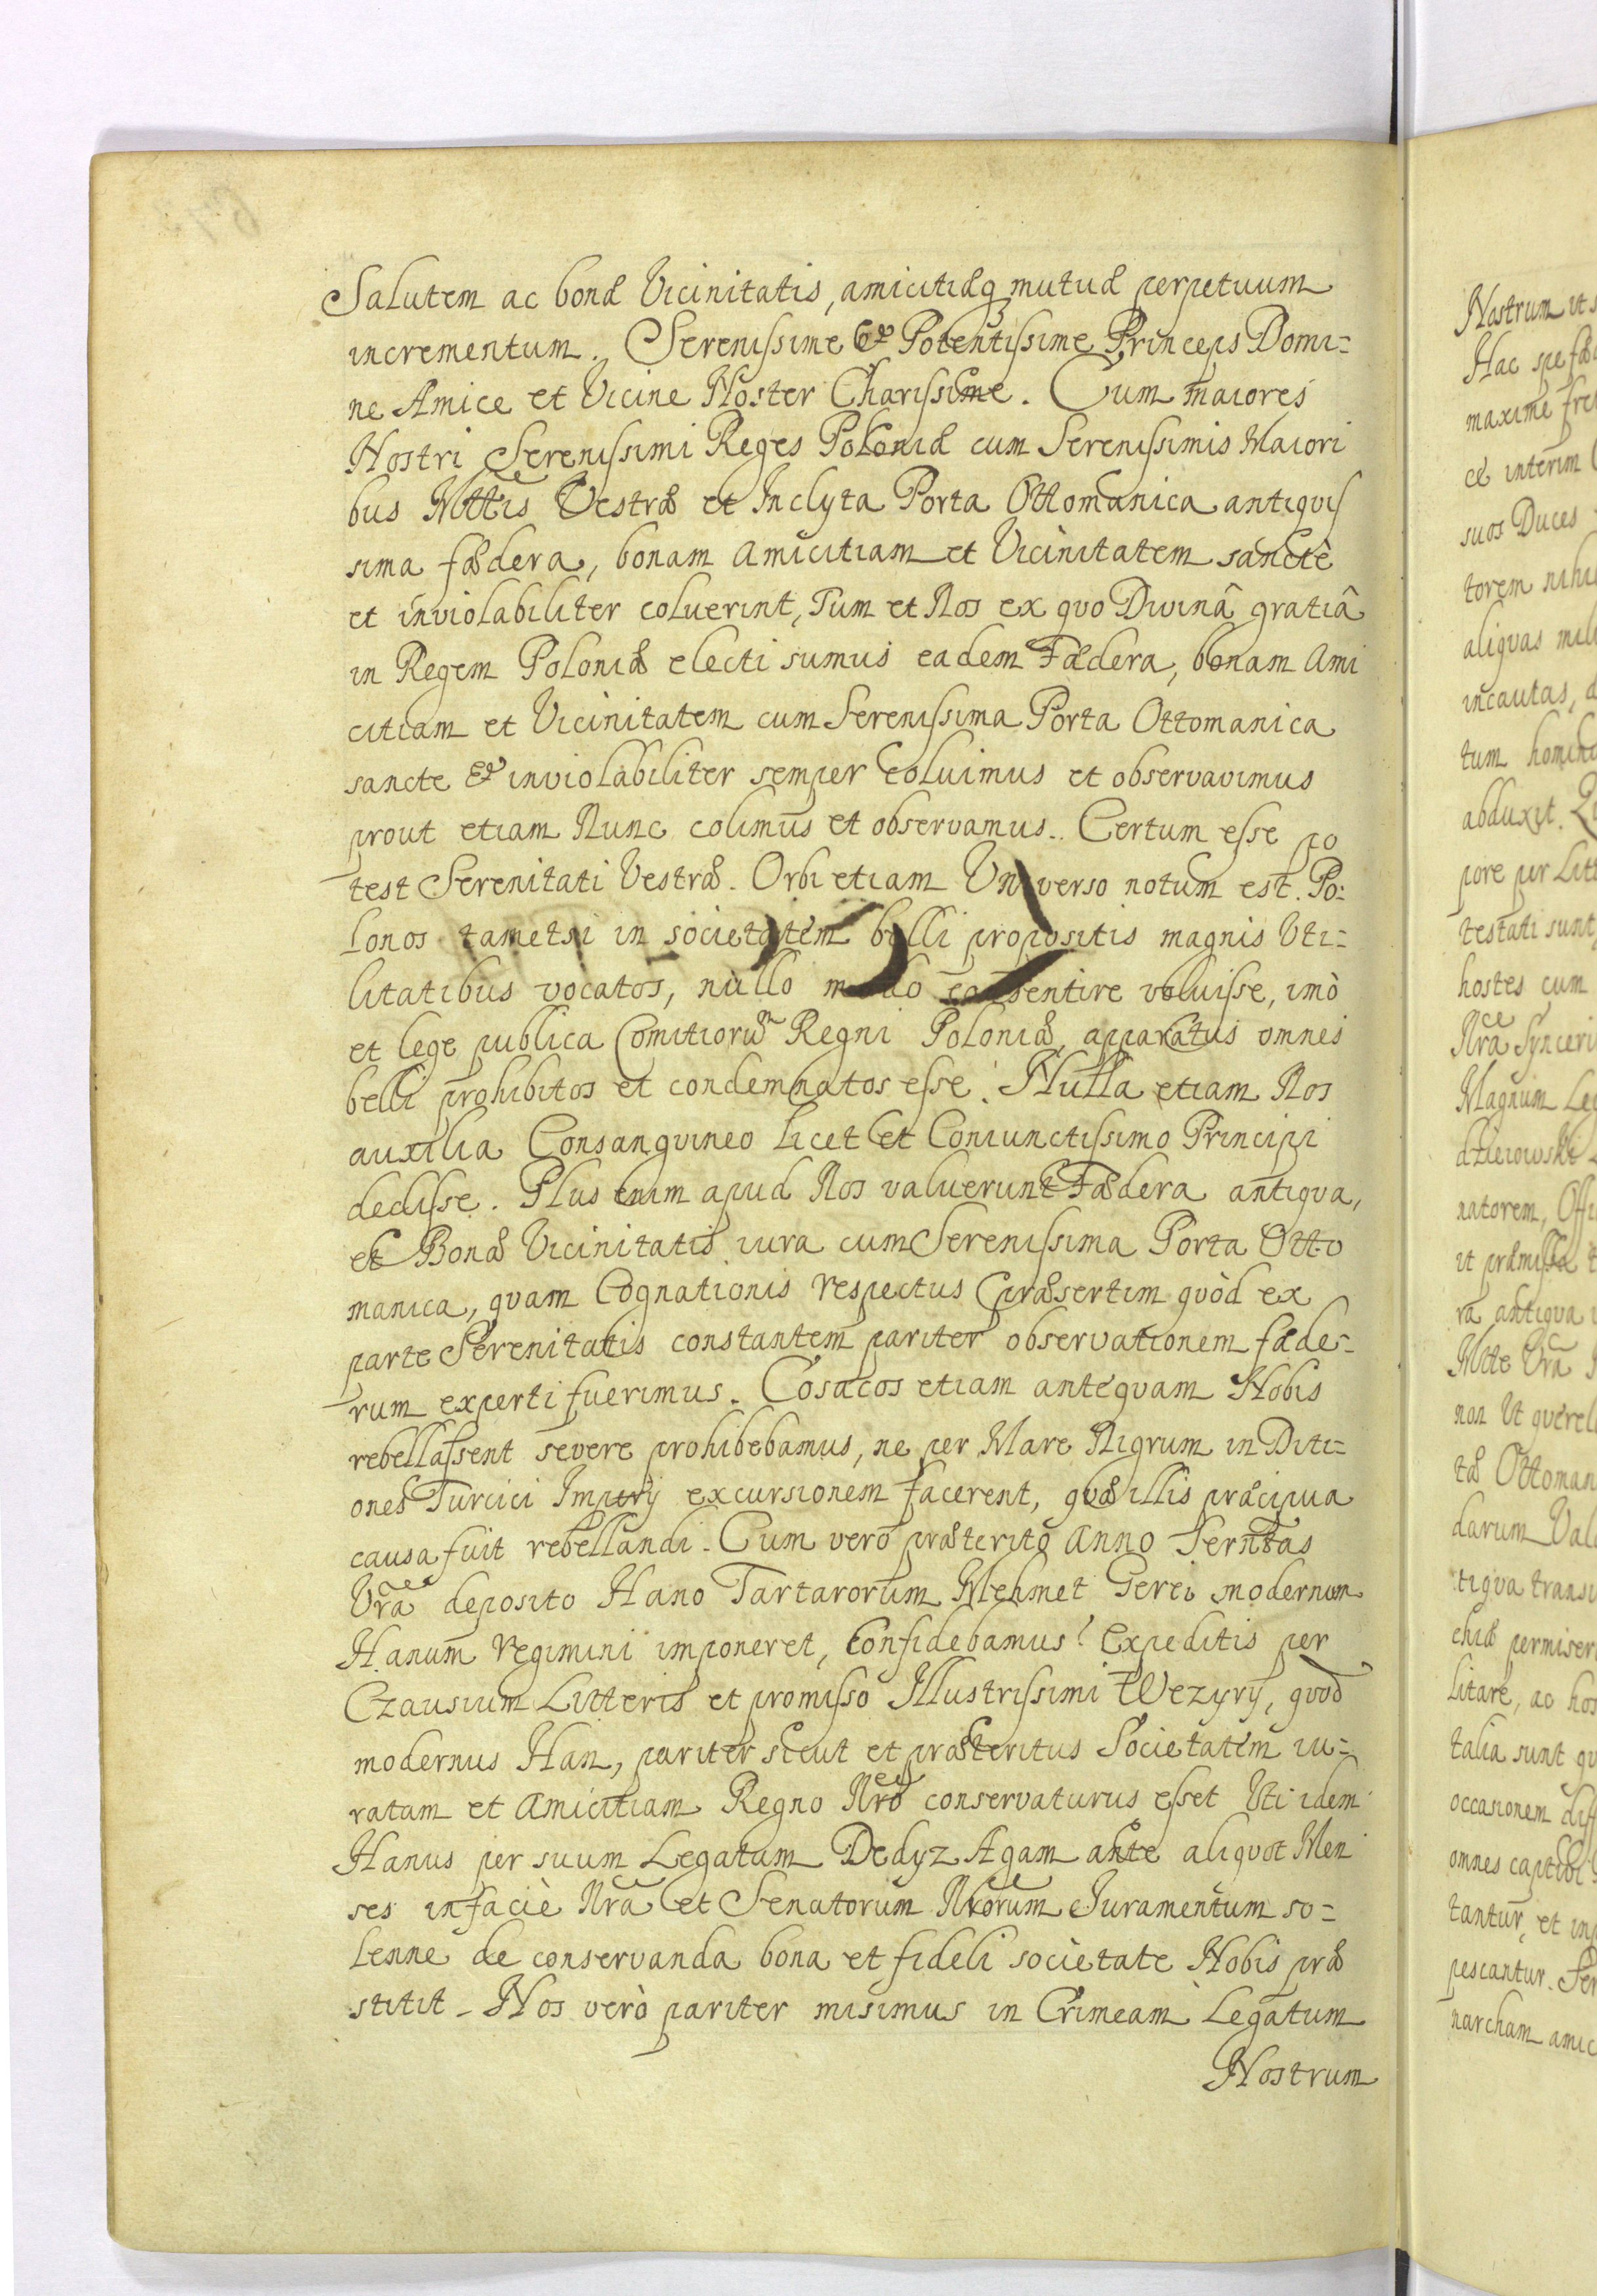 Salutem ac bonæ Vicinitatis, amicitiæq mutuæ perpetuum
incrementum. Serenissime & Potentissime Princeps Domi=
ne Amice et Vicine Noster Charissime. Cum maiores
Nostri Serenissimi Reges Poloniæ cum Serenissimis Maiori
bus Mttis Vestræ et Inclyta Porta Ottomanica antiquis
sima fædera, bonam amicitiam et Vicinitatem sanctè
et inviolabiliter coluerint, Tum et Nos ex quo Divinâ gratiâ
in Regem Poloniæ electi sumus eadem Fædera, bonam Ami
citiam et Vicinitatem cum Serenissima Porta Ottomanica
sancte & inviolabiliter semper coluimus et observavimus
prout etiam Nunc colimus et observamus. Certum esse po
test Serenitati Vestræ. Orbi etiam Universo notum est. Po=
lonos tametsi in societatem belli propositis magnis Uti=
litatibus vocatos, nullo modo consentire voluisse, imò
et lege publica Comitiorum Regni Poloniæ, apparatus omnes
belli prohibitos et condemnatos esse. Nulla etiam Nos
auxilia Consanguineo licet et Coniunctissimo Principi
dedisse. Plus enim apud Nos valuerunt Fædera antiqua,
et Bonæ Vicinitatis iura cum Serenissima Porta Otto
manica, quam Cognationis respectus præsertim quòd ex
parte Serenitatis constantem pariter observationem fæde=
rum experti fuerimus. Cosacos etiam antequam Nobis
rebellassent severe prohibebamus, ne per Mare Nigrum in Diti=
ones Turcici Impery excursionem facerent, quæ illis præcipua
causa fuit rebellandi. Cum vero præterito anno Serntas
Vra deposito Hano Tartarorum Mehmet Gerei modernum
Hanum regimini imponeret, confidebamus expeditis per
Czausium Litteris et promisso Illustrissimi Wezyry, quod
modernus Han, pariter sicut et præteritus Societatem iu=
ratam et amicitiam Regno Nro conservaturus esset Uti idem
Hanus per suum Legatum Dedyz Agam ante aliquot Men
ses in facie Nra et Senatorum Nrorum Iuramentum so=
lenne de conservanda bona et fideli societate Nobis præ
stitit. Nos verò pariter misimus in Crimeam Legatum
Nostrum